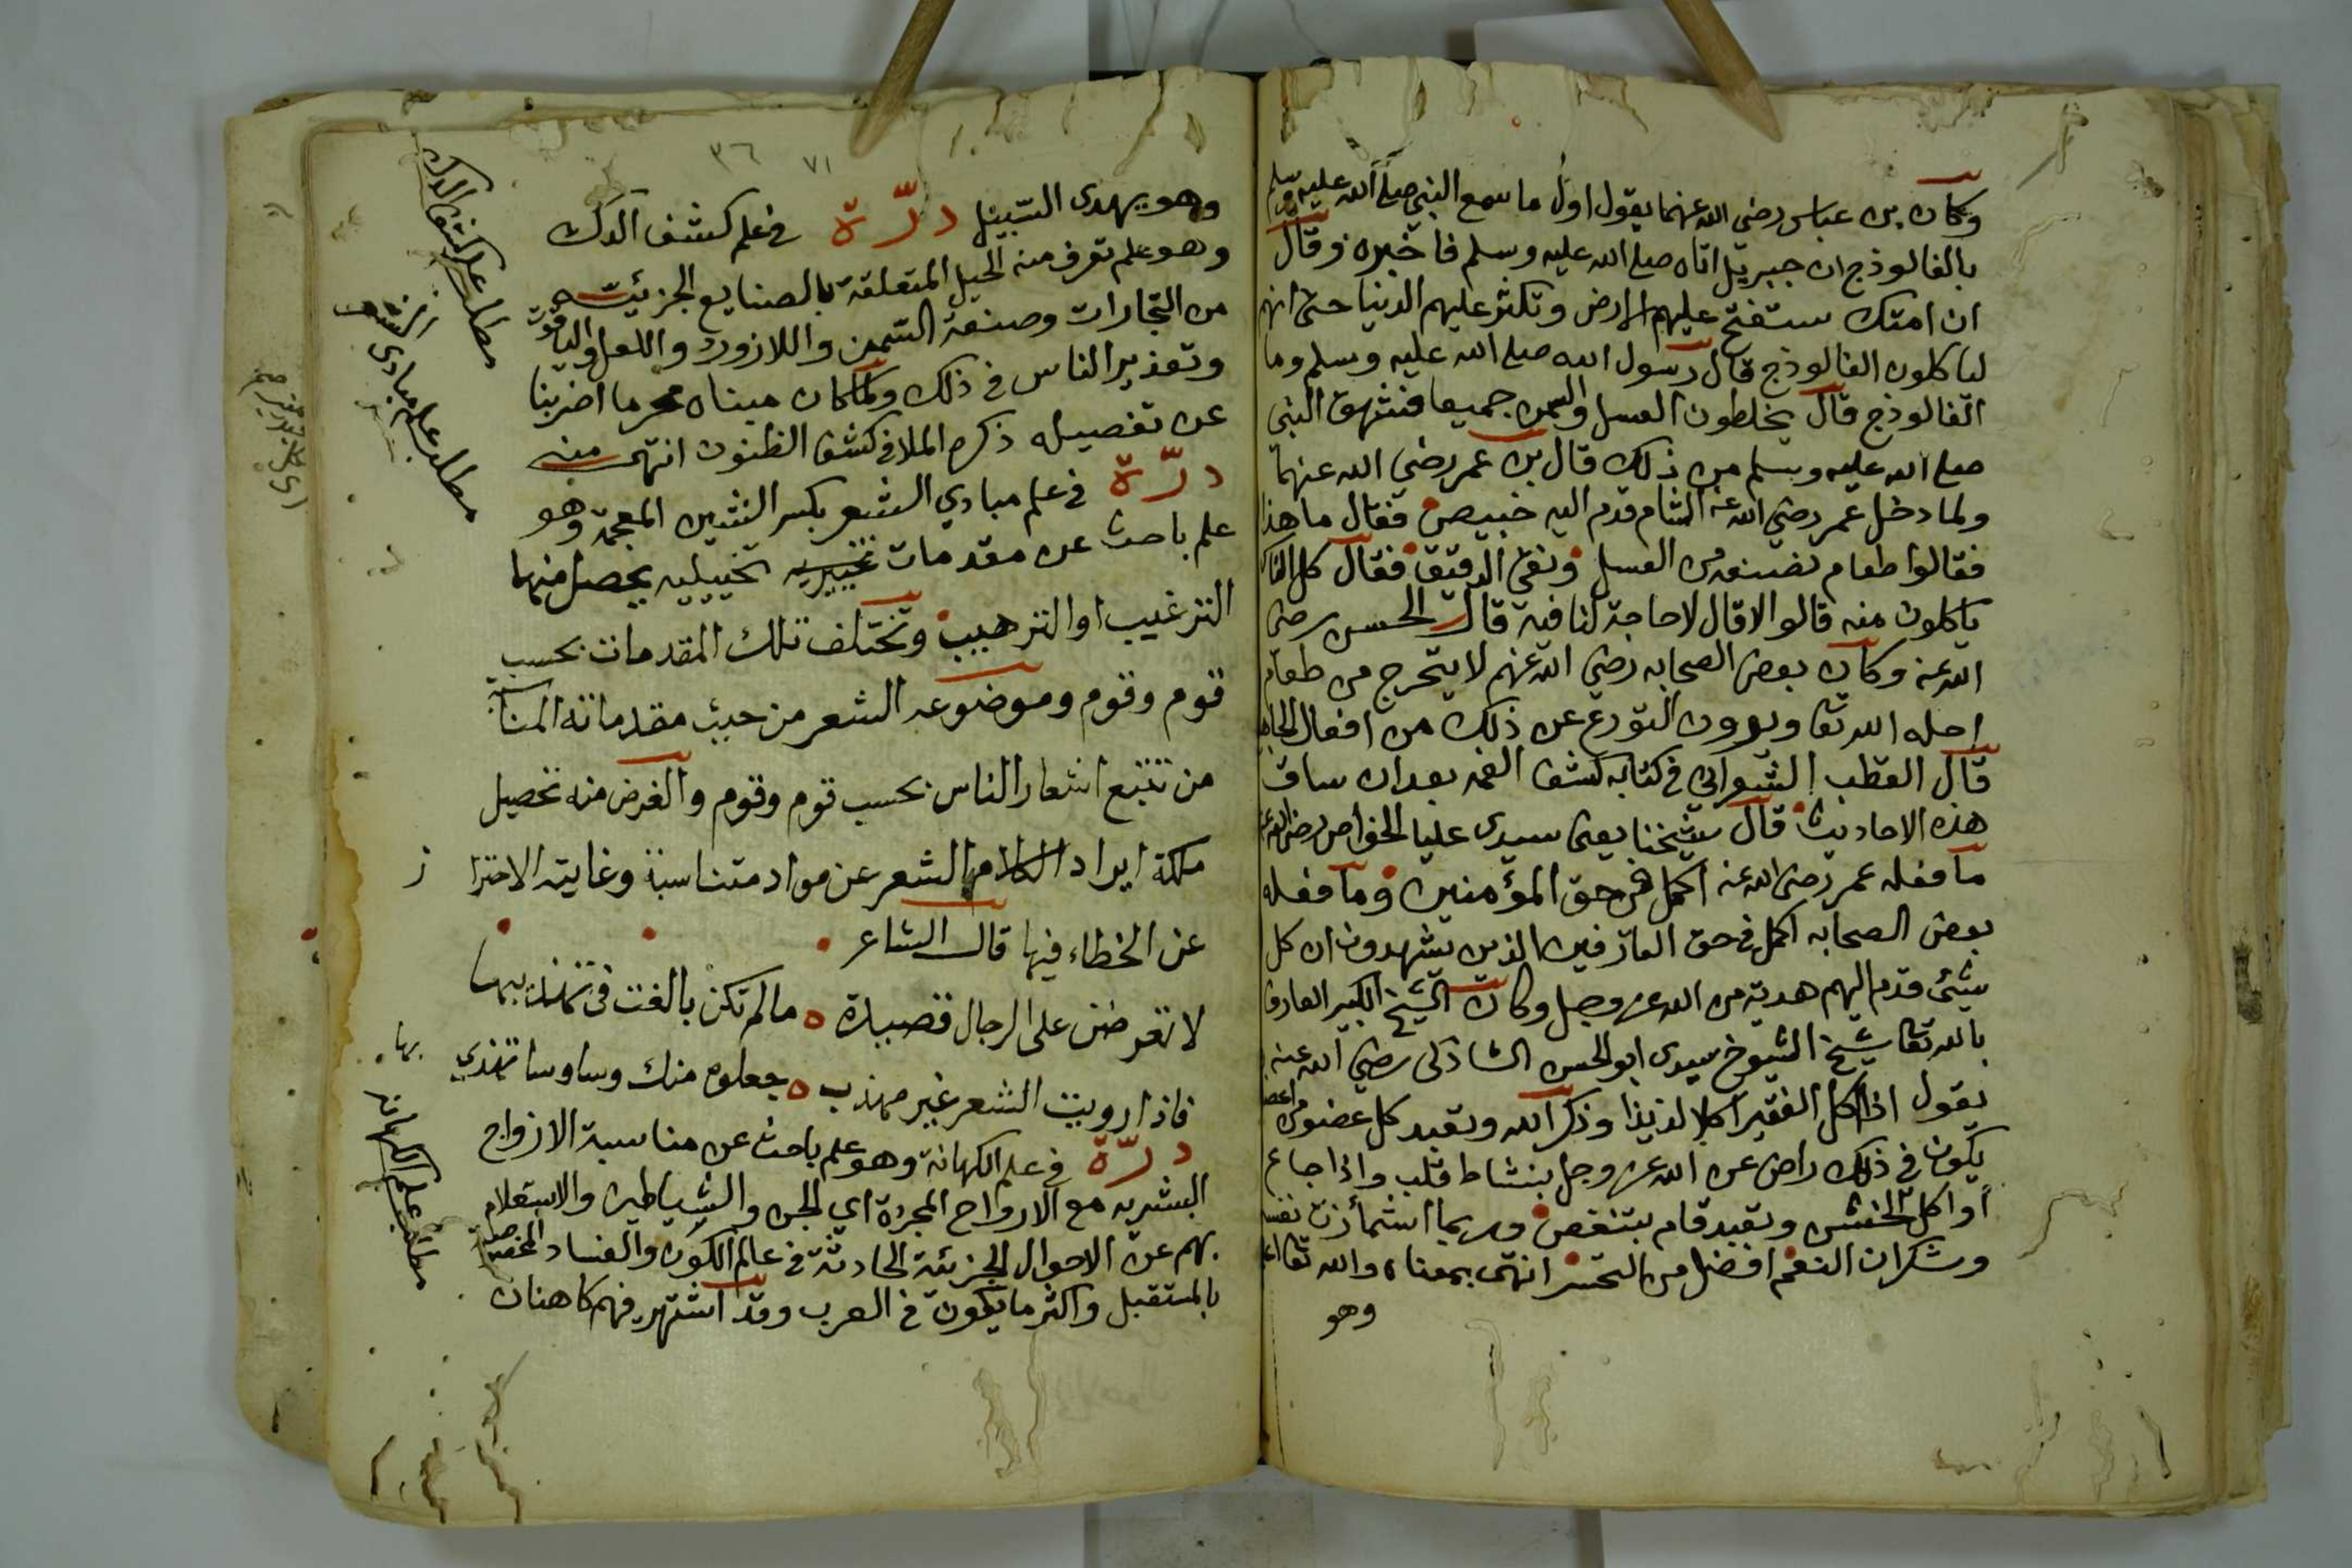 وكان بن عباس رضي الله عنهما يقول اول ما سمع النبي صلى الله عليه وسلم
بالفالوذج ان جبريل اتاه صلى الله عليه وسلم فاخبره وقال
ان امتك ستفتح عليهم الارض وتكثر عليهم الدنيا حتى انهم
لياكلون الفالوذج قال رسول الله صلى الله عليه وسلم وما
الفالوذج قال يخلطون العسل والسمن جميعا فشهق النبي
صلى الله عليه وسلم من ذلك قال بن عمر رضي الله عنهما
ولما دخل عمر رضي الله عنه الشام قدم اليه خبيص فقال ما هذا
فقالوا طعام نصنعه من العسل ونقي الدقيق فقال كل الناس
ياكلون منه قالوا لا قال لا حاجة لنا فيه قال الحسن رضي
الله عنه وكان بعض الصحابه رضي الله عنهم لا يتحرج من طعام
احله الله تعا ويرون التورع عن ذلك من افعال الجاهلية
قال القطب الشعراني في كتابه كشف الغمه بعد ان ساق
هذه الاحاديث قال شيخنا يعني سيدى عليا الخواص رضي الله عنه
ما فعله عمر رضي الله عنه اكمل في حق المؤمنين وما فعله
بعض الصحابه اكمل في حق العارفين الذين يشهدون ان كل
شئ قدم اليهم هدية من الله عز وجل وكان الشيخ الكبير العارف
بالله تعا شيخ الشيوخ سيدى ابو الحسن الشاذلى رضي الله عنه
يقول اذا اكل الفقير اكلا لذيذا وذكر الله وتعبد كل عضو من اعضا
يكون في ذلك راض عن الله عز وجل بنشاط قلب واذا جاع
أو اكل الخشن وتعبد قام بتنغص وربما اشمأزت نفسه
وشكران النعم افضل من التحسر انتهى بمعناه والله تعا اعلم
وهو
٧١ ٣٦
وهو يهدى السبيل درّة في علم كشف الدك
وهو علم تعرف منه الحيل المتعلقة بالصنايع الجزئيه
من التجارات وصنعة السمن واللازورد واللعل والياقوت
وتغرير الناس في ذلك ولما كان مبناه محرما اضربنا
عن تفصيله ذكره الملا في كشف الظنون انتهى منه
درّة في علم مبادي الشعر بكسر الشين المعجمة وهو
علم باحث عن مقدمات تخييريه تخييليه يحصل منها
الترغيب او الترهيب وتختلف تلك المقدمات بحسب
قوم وقوم وموضوعه الشعر من حيث مقدماته المناسبة
من تتبع اشعار الناس بحسب قوم وقوم والغرض منه تحصيل
ملكة ايراد الكلام الشعر عن مواد متناسبة وغايته الاحترا
ز
عن الخطاء فيها قال الشاعر
لا تعرضن على الرجال قصيدة ه ما لم تكن بالغت في تهذيبها
فاذا رويت الشعر غير مهذب ه جعلوه منك وساوسا تهذي
بها
درّة في علم الكهانة وهو علم باحث عن مناسبة الارواح
البشريه مع الارواح المجردة اي الجن والشياطين والاستعلام
بهم عن الاحوال الجزئية الحادثة في عالم الكون والفساد المخصوصة
بالمستقبل واكثر ما يكون في العرب وقد اشتهر فيهم كاهنان
مطلب علم كشف الدك
مطلب علم مبادى الشعر
مطلب علم الكهانة